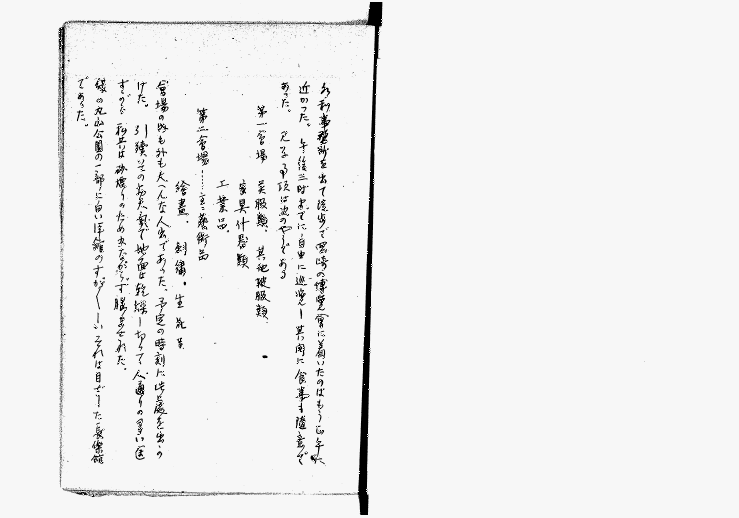 水利事務所を出て徒歩で岡崎の博覽會に着いたのはもう正午に
近かつた。午後三時までに自由に巡覽し其間に食事も隨意で
あつた。見る事項は次のやうである
第一會場 美服類、其他被服類、
家具什器類
工業品。
第二會場……主に藝術品
繪畫、刺繍。生花等
會場の內も外も大へんな人出であつた。予定の時刻に此處を出か
けた。引續いてのお天氣で地面は乾燥し切つて人通りの多い道
すがら私共は砂煙りのため少なからず惱まされた。
後の丸山公園の一部に白い洋館のすが〻しいそれは目ざした長樂館
であつた。